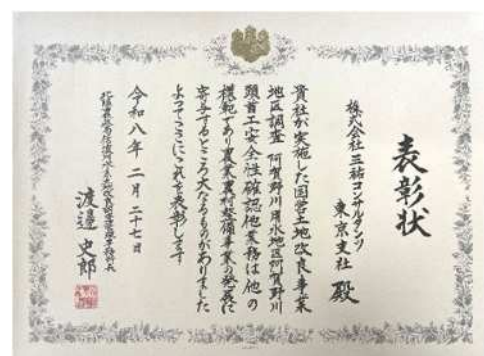 表彰状
株式会社三祐コンサルタンツ
東京支社 殿
貴社が実施した国営土地改良事業
地区調査 阿賀野川用水地区阿賀野川
頭首工安全性確認他業務は他の
模範であり農業農村整備事業の発展に
寄与するところ大なるものがありました
よってここにこれを表彰します
令和八年二月二十七日
北陸農政局信濃川水系土地改良調査管理事務所長
渡邉史郎